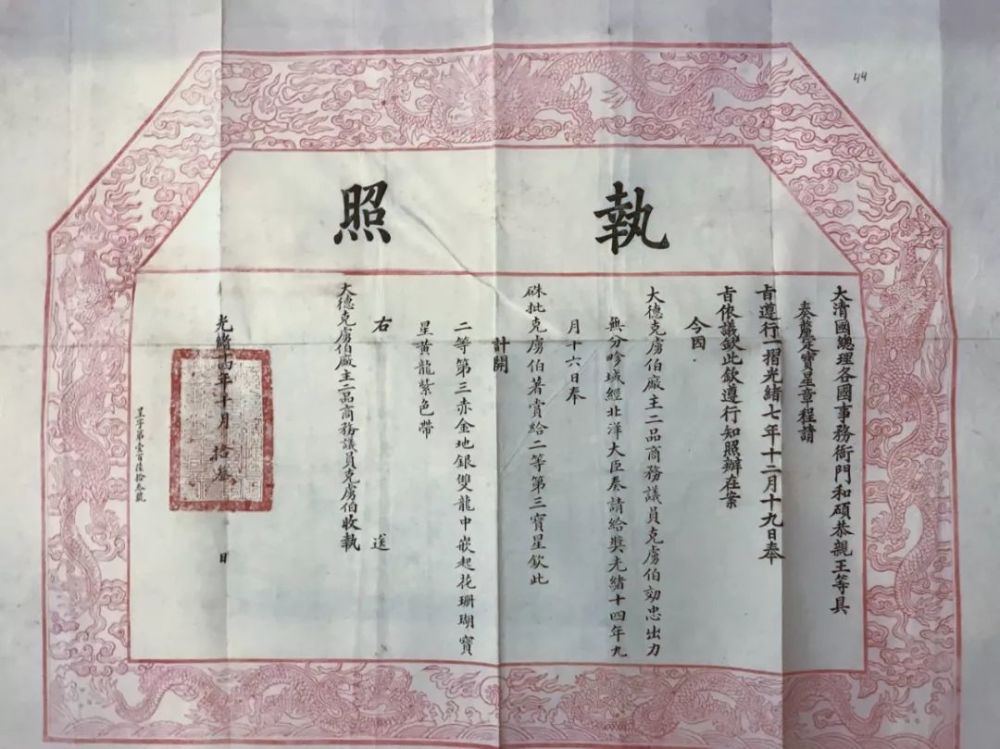 執照
大清國總理各國事務衙門和碩恭親王等具
奏釐定寶星章程請
旨遵行一摺光緒七年十二月十九日奉
旨依議欽此欽遵行知照辦在案
今因
大德克虜伯廠主二品商務議員克虜伯効忠出力
無分畛域經北洋大臣奏請給獎光緒十四年九
月十六日奉
硃批克虜伯著賞給二等第三寶星欽此
計開
二等第三赤金地銀雙龍中嵌起花珊瑚寶
星黃龍紫色帶
右 送
大德克虜伯廠主二品商務議員克虜伯收執
光緒十四年十月 拾叁 日
字第壹百陸拾叁號
44